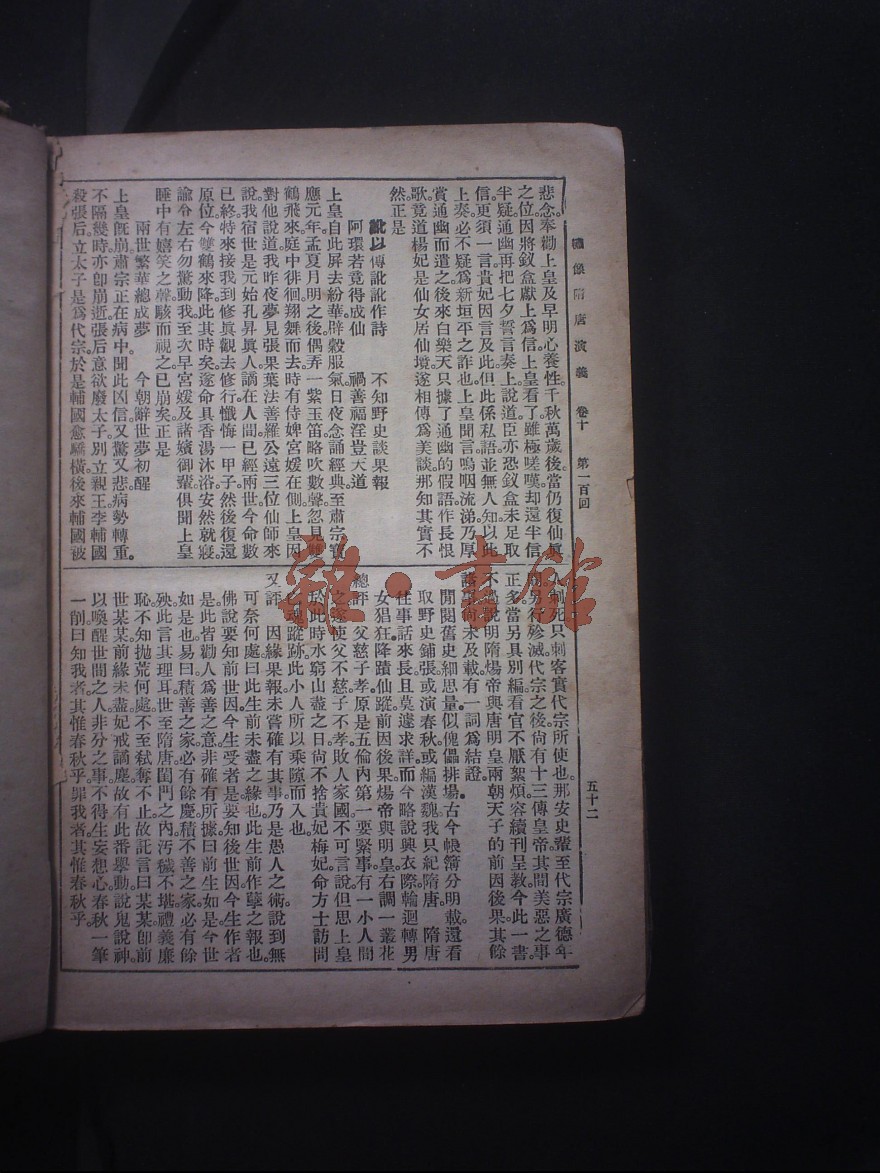 繡像隋唐演義 卷十 第一百回 五十二
悲念。奉勸上皇及早明心養性。千秋萬歲後。當仍復仙眞
之位。因將釵盒獻上爲信。上皇看了。雖極嗟嘆。却還半信
半疑。通幽再把七夕誓言奏上。說道臣亦恐釵盒未足取
信。更須一言。貴妃因言及此。但此係私語。並無人知。以此
上奏。必不疑爲新垣平之詐也。上皇聞言。嗚咽流涕。乃厚
賞通幽而遣之。後來白樂天只據了通幽的假語。作長恨
歌。竟道楊妃是仙女居仙境。遂相傳爲美談。那知其實不
然。正是
訛以傳訛訛作詩 不知野史談果報
阿環若竟得成仙 禍善福淫豈天道
上皇自此屏去紛華。辟穀服氣。日夜念誦經典。至肅宗寶
應元年。孟夏月明之後。偶弄一紫玉笛。略吹數聲。忽見雙
鶴飛來。庭中徘徊翔舞而去。時有侍婢宮媛在側。上皇因
對他說道。我昨夜夢見張果葉法善羅公遠三位仙師來
說。我宿世是元始孔昇眞人。謫在人間。已經兩世。今命數
已終。特來接我到修眞觀去修行。懺悔一甲子。然後復還
原位。今雙鶴來降。此其時矣。遂命具香湯沐浴。安然就寢。
諭令左右勿驚動我。至次早。宮媛及諸嬪御輩俱聞上皇
睡中有嬉笑之聲。駭而視之。已崩矣。正是
兩世繁華總成夢 今朝辭世夢初醒
上皇旣崩。肅宗正在病中。聞此凶信。又驚又悲。病勢轉重。
不隔幾時。亦卽崩逝。張后意欲廢太子。別立親王。李輔國
殺張后。立太子。是爲代宗。於是輔國愈驕橫。後來輔國被
人刺死。只刺客實代宗所使也。那安史輩至代宗廣德年
間另行殄滅。代宗之後。尚有十三傳皇帝。其間美惡之事
正多。當另具別編。看官不厭絮煩。容續刊呈教。今此一書。
不過說明隋煬帝與唐明皇兩朝天子的前因後果。其餘
諸事尚未及載。有一詞爲結證。
閒閱舊史細思量。似傀儡排場。古今帳簿分明載。還看
取野史鋪張。或演春秋。或編漢魏。我只紀隋唐。 隋唐
往事話來長。且莫遽求詳。而今略說興衣際。輪迴轉男
女猖狂。降蹟仙蹤。前因後果。煬帝與明皇。右調一叢花
總評 父慈子孝。原是五倫內第一要緊事。有一小人間
之。遂使父不慈。子不孝。敗人家國。不可言說。但思上皇
於此時。水窮山盡之日。尚不捨貴妃梅妃。命方士訪問
魂蹤跡。此小人所以乘隙而入也。
又評 因緣果報。未嘗確有其事。乃是愚人之術。說到無
可奈何處。曰此生前未盡之緣也。此生前作孽之報也。
佛說要知前世因。今生受者是。要知後世因。今生作者
是。此皆勸人爲善之意。非確有所據。曰前生如是。今世
如是也。易曰。積善之家。必有餘慶。積不善之家。必有餘
殃。此言其理耳。世至隋唐。閨門之內。汚穢不堪。禮義廉
恥。不知拋荒何處。不至弒奪不止。故託言曰。某某卽前
世某某。前緣未盡。妃戒謫塵。故有此番舉動。說鬼說神。
以喚醒世間之人。非分之事。不得生妄想心。春秋一筆
一削曰。知我者。其惟春秋乎。罪我者。其惟春秋乎。
雜·書館